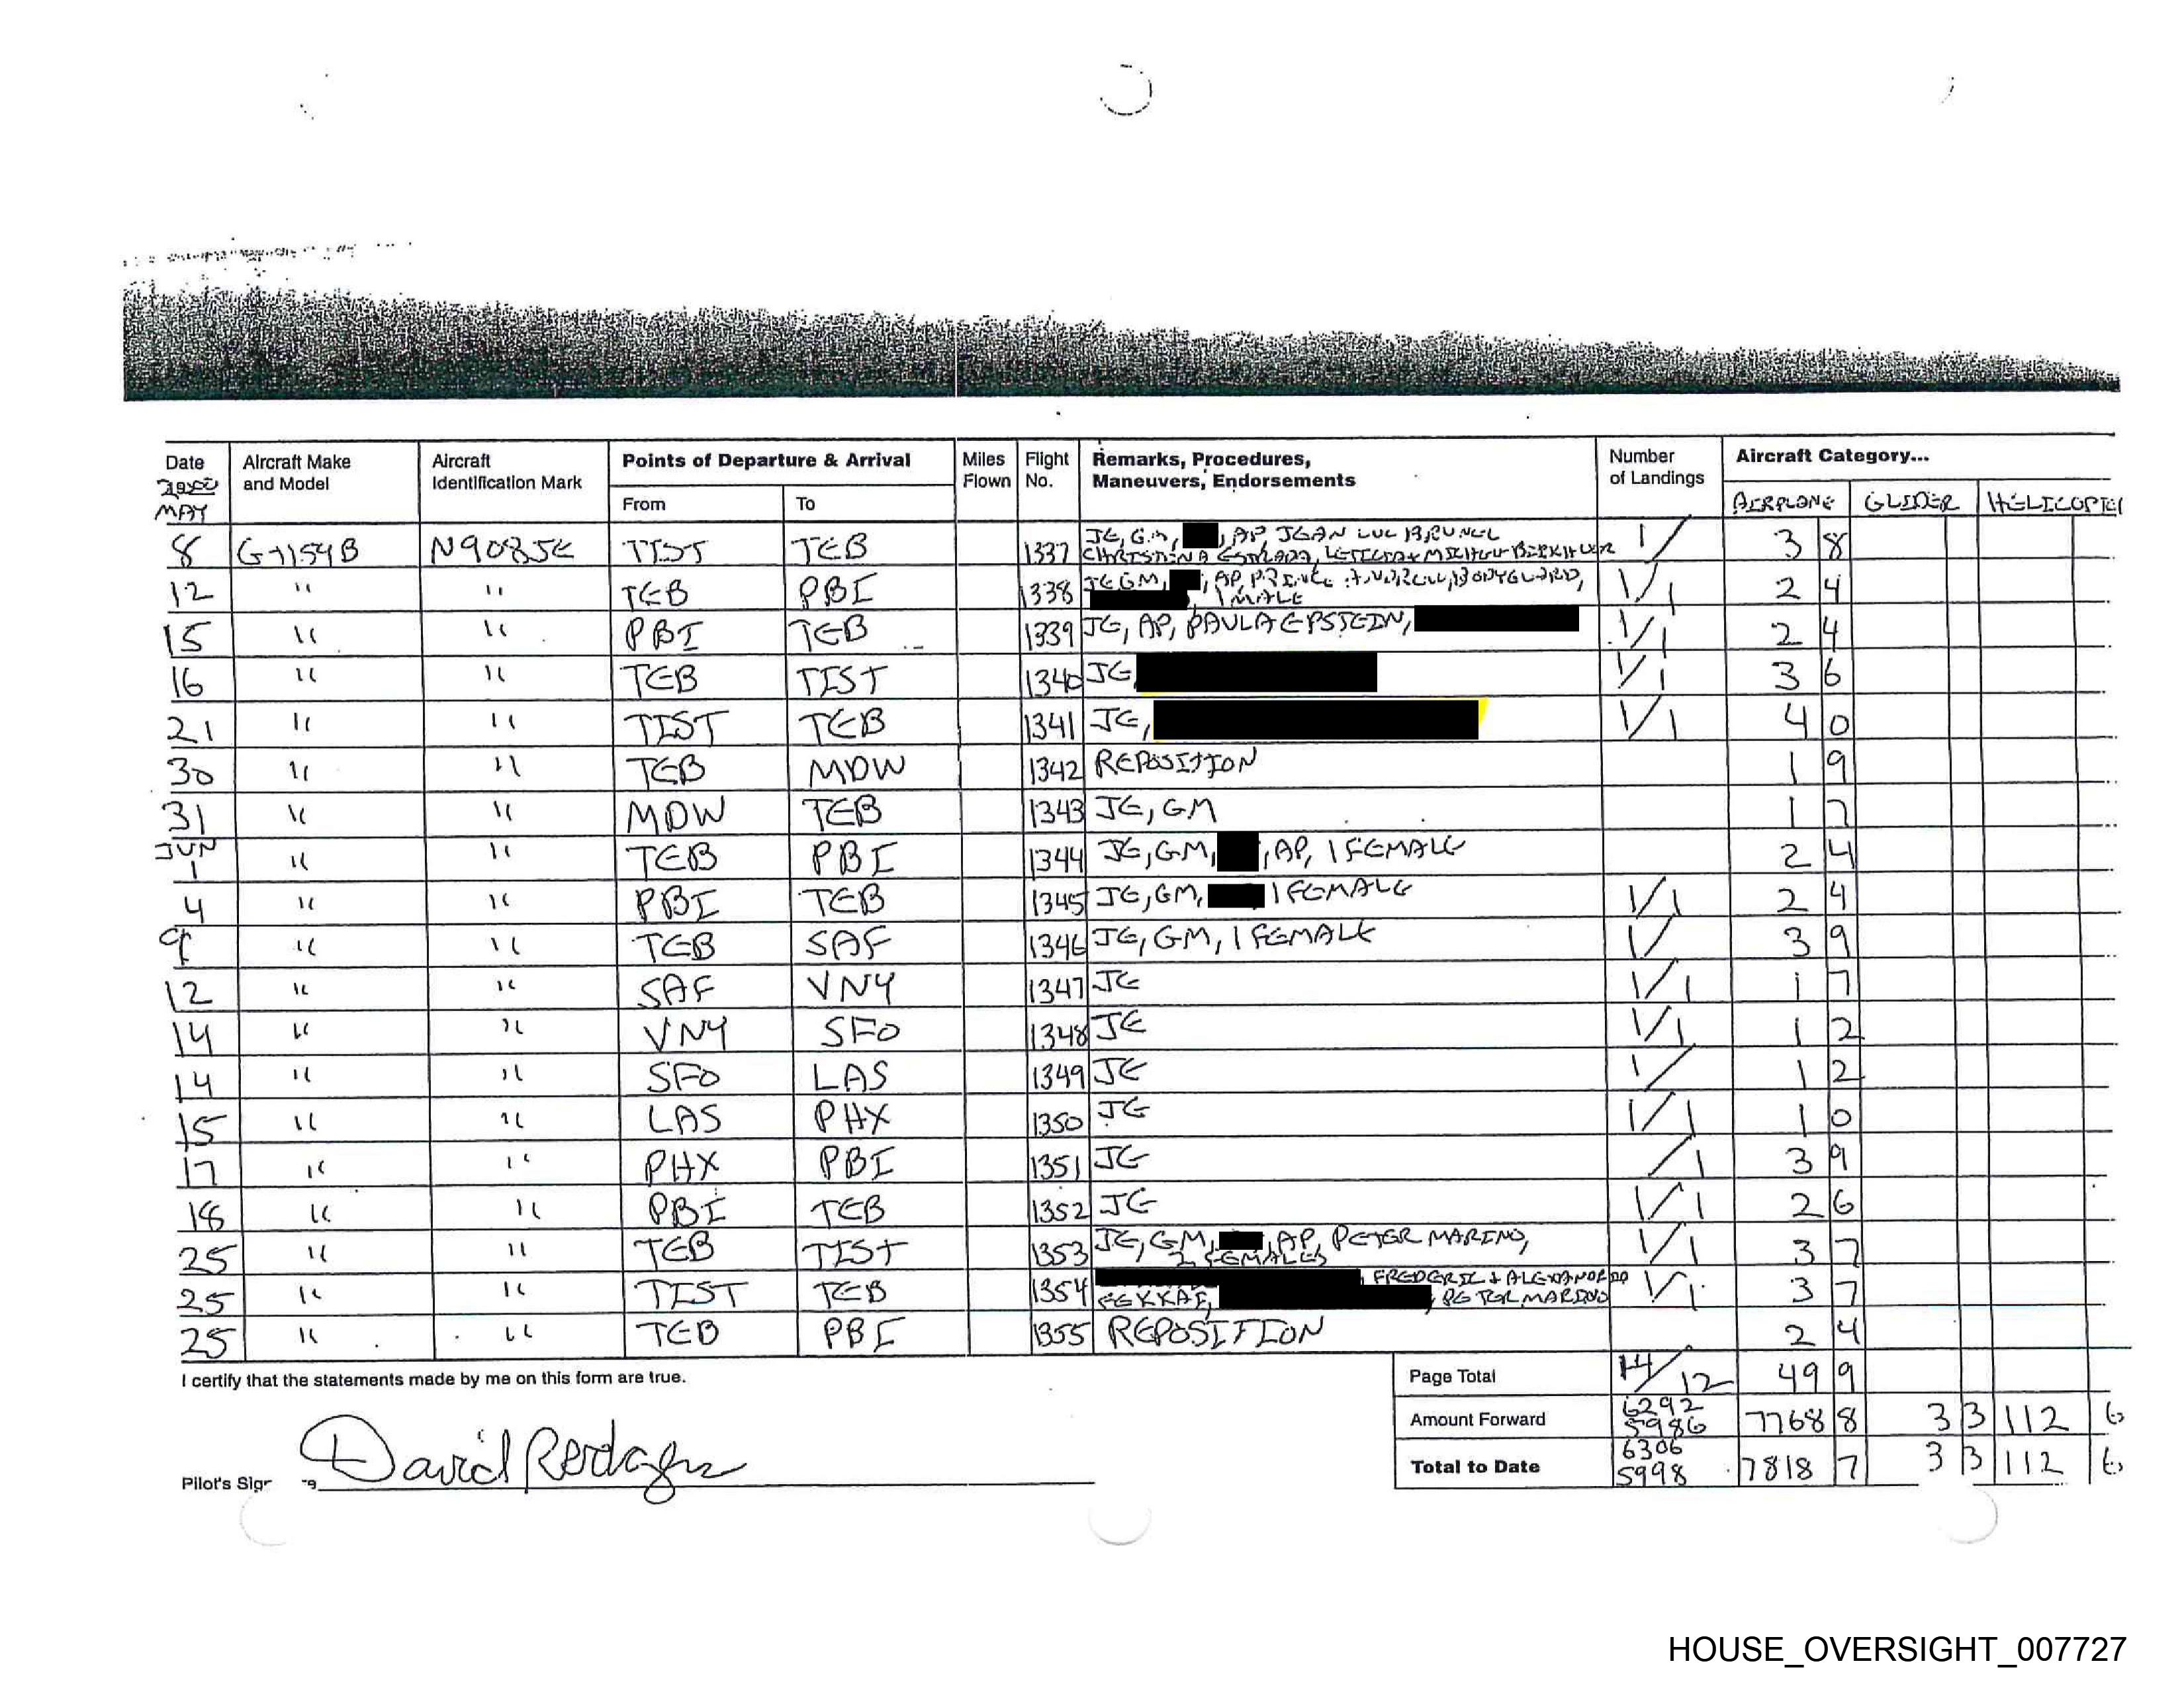 Date Aircraft Make and Model Aircraft Identification Mark Points of Departure & Arrival Miles Flown Flight No. Remarks, Procedures, Maneuvers, Endorsements Number of Landings Aircraft Category...
From To
MAY AIRPLANE GLIDER HELICOPTER
8 G-1159B N908JE TIST TEB 1337 JE, GM, , AP, JEAN LUC BRUNEL 1/ 3 8
CHRISTINA ESTRADA, LETICIA +
12 " " TEB PBI 1338 JE GM, , AP, PRINCE ANDREW, BODYGUARD, 1/1 2 4
, 1 MALE
15 " " PBI TEB 1339 JE, AP, PAULA EPSTEIN, 1/1 2 4
16 " " TEB TIST 1340 JE 1/1 3 6
21 " " TIST TEB 1341 JE, 1/1 4 0
30 " " TEB MDW 1342 REPOSITION 1 9
31 " " MDW TEB 1343 JE, GM 1 7
JUN
1 " " TEB PBI 1344 JE, GM, , AP, 1 FEMALE 2 4
4 " " PBI TEB 1345 JE, GM, 1 FEMALE 1/1 2 4
9 " " TEB SAF 1346 JE, GM, 1 FEMALE 1/ 3 9
12 " " SAF VNY 1347 JE 1/1 1 7
14 " " VNY SFO 1348 JE 1/1 1 2
14 " " SFO LAS 1349 JE 1/ 1 2
15 " " LAS PHX 1350 JE 1/1 1 0
17 " " PHX PBI 1351 JE /1 3 9
18 " " PBI TEB 1352 JE 1/1 2 6
25 " " TEB TIST 1353 JE, GM, , AP, PETER MARINO, 1/1 3 7
2 FEMALES
25 " " TIST TEB 1354 , FREDERIC + ALEXANDRO 1/1 3 7
FEKKAI, , PETER MARINO
25 " " TEB PBI 1355 REPOSITION 2 4
I certify that the statements made by me on this form are true. Page Total 14/12 49 9
Amount Forward 6292 5986 7768 8 3 3 112 6
Total to Date 6306 5998 7818 7 3 3 112 6
Pilot's Sig David Rodgers
HOUSE_OVERSIGHT_007727